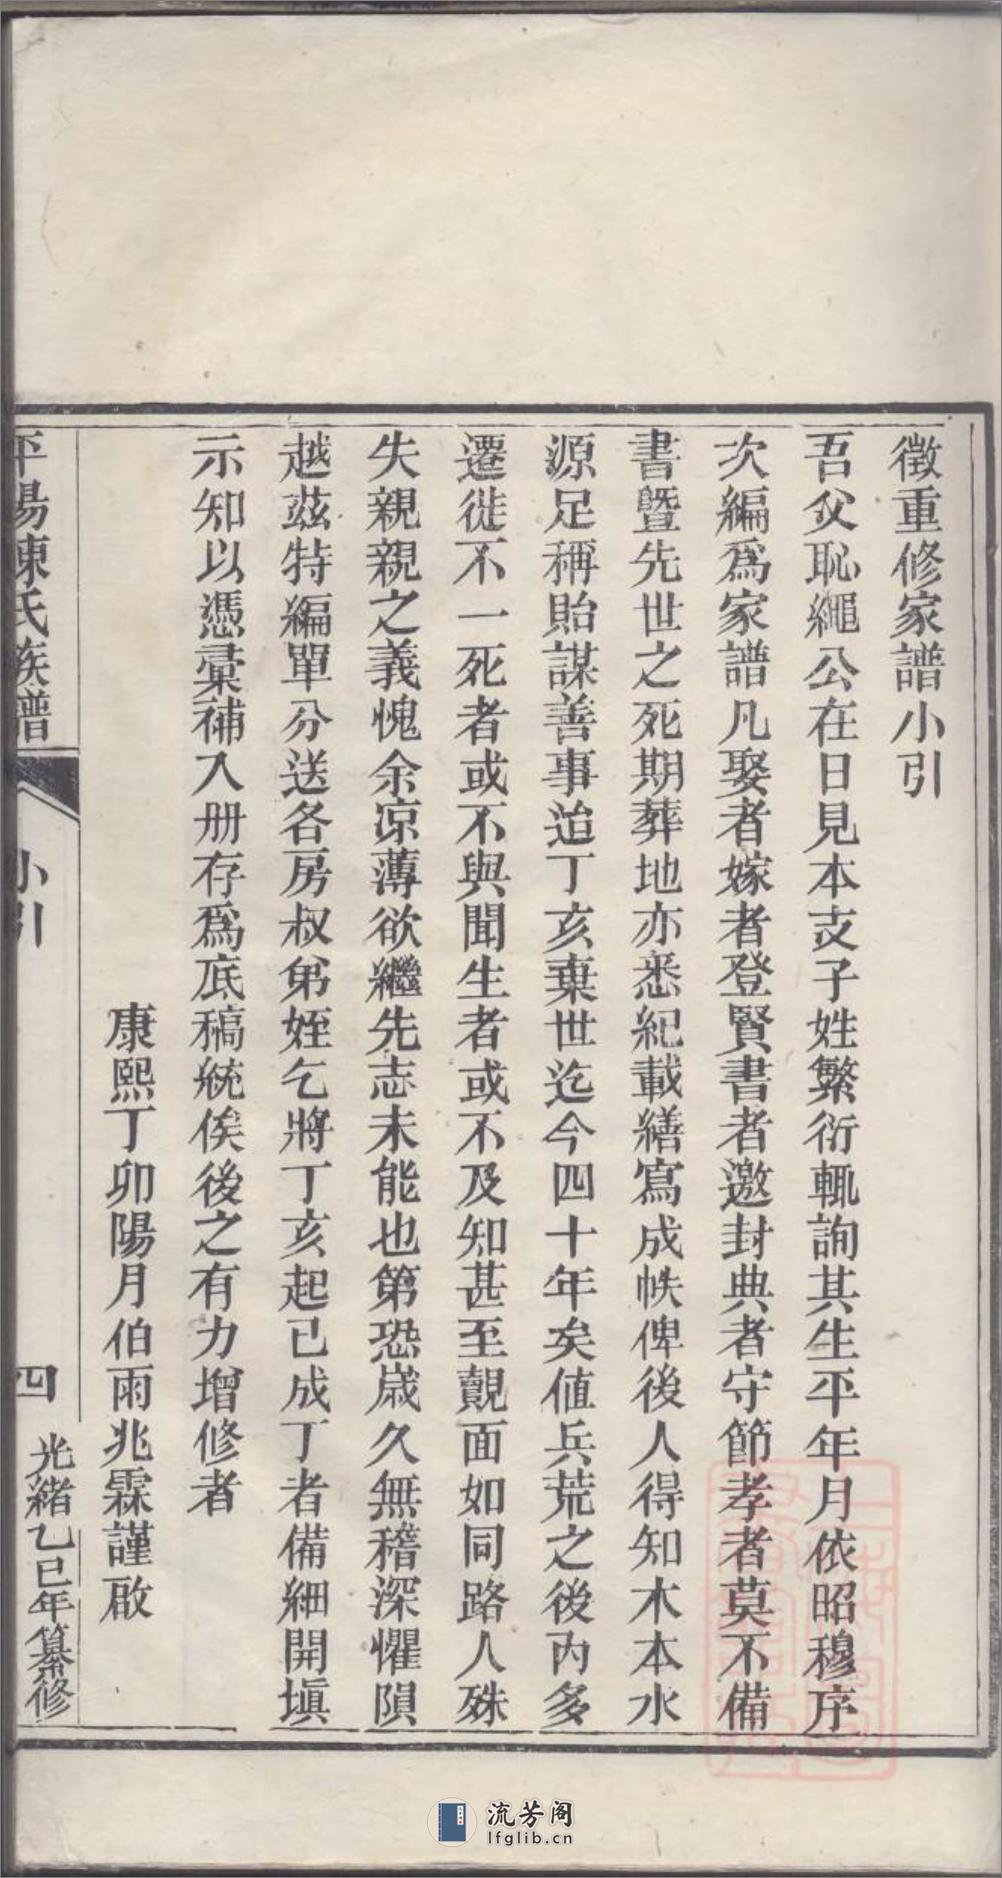 徵重修家譜小引
吾父恥繩公在日見本支子姓繁衍輒詢其生平年月依昭穆序
次編爲家譜凡娶者嫁者登賢書者邀封典者守節孝者莫不備
書暨先世之死期葬地亦悉紀載繕寫成帙俾後人得知木本水
源足稱貽謀善事迨丁亥棄世迄今四十年矣値兵荒之後內多
遷徙不一死者或不與聞生者或不及知甚至覿面如同路人殊
失親親之義愧余凉薄欲繼先志未能也第恐歲久無稽深懼隕
越茲特編單分送各房叔弟姪乞將丁亥起已成丁者備細開塡
示知以憑彙補入册存爲底稿統俟後之有力增修者
康熙丁卯陽月伯雨兆霖謹啟
平陽陳氏族譜
小引
四
光緒乙巳年纂修
流芳阁
lfglib.cn